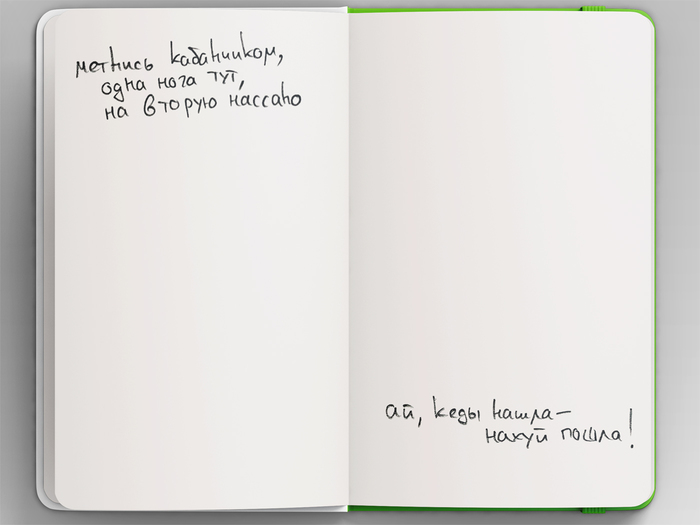 метнись кабанчиком,
одна нога тут,
на вторую нассано
ай, кеды нашла—
нахуй пошла!